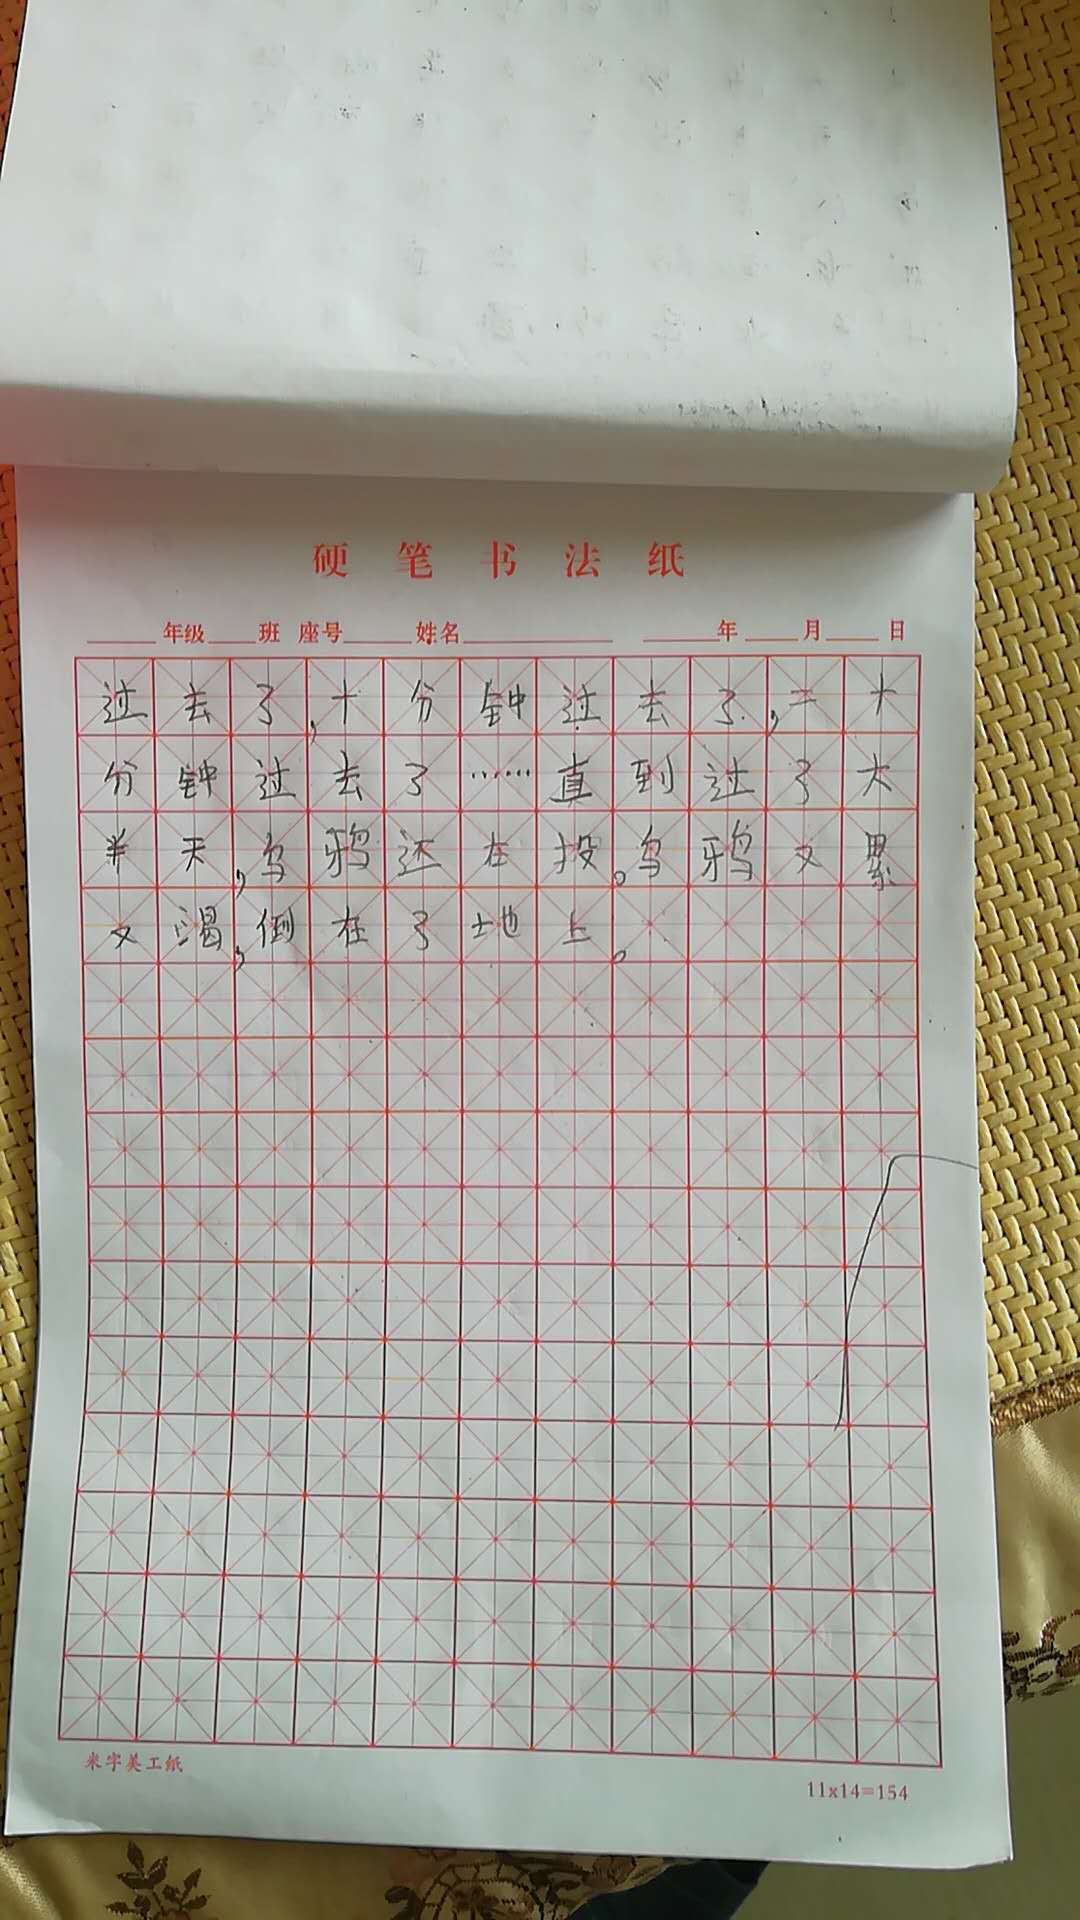 硬笔书法纸
年级 班 座号 姓名 年 月 日
过去了,十分钟过去了,二十
分钟过去了……直到过了大
半天,乌鸦还在投。乌鸦又累
又渴,倒在了地上。
米字美工纸
11x14=154